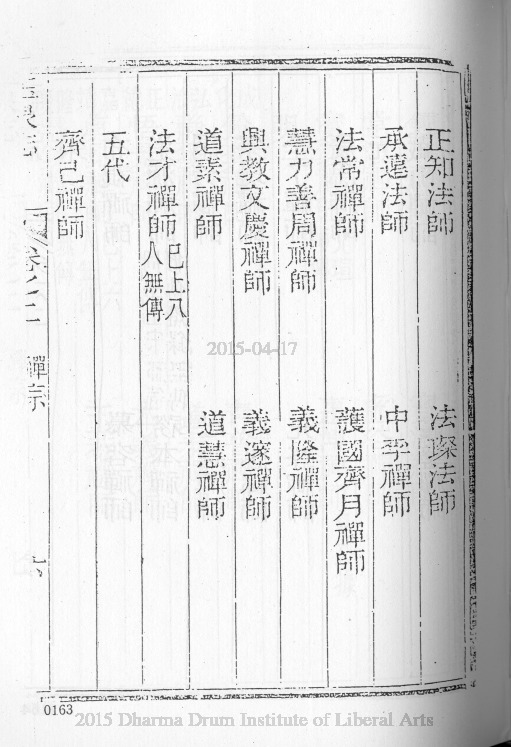 正知法師　法璨法師
承遠法師　中孚禪師
法常禪師　護國齊月禪師
慧力善周禪師　義隆禪師
興教文慶禪師　義邃禪師
道素禪師　道慧禪師
法才禪師　已上八人無傳
五代
齊己禪師
卷之二　禪宗
2015-04-17
0163
2015 Dharma Drum Institute of Liberal Arts